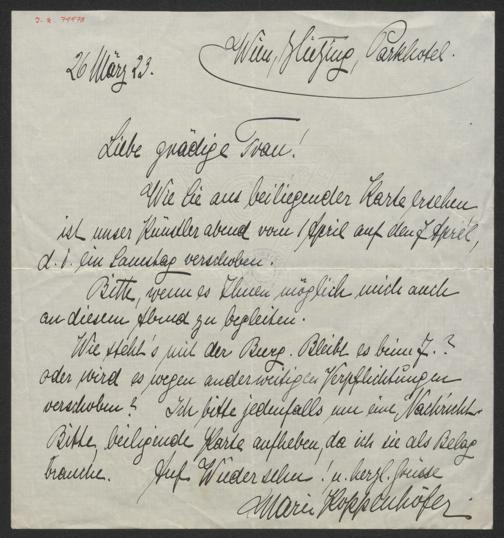 J. N. 79978
26 März 23.
Wien, Hietzing, Parkhotel.
Liebe gnädige Frau!
Wie Sie aus beiliegender Karte ersehen
ist unser Künstlerabend vom 1 April auf den 7 April,
d. i. ein Samstag verschoben.
Bitte, wenn es Ihnen möglich mich auch
an diesem Abend zu begleiten.
Wie steht's mit der Burg. Bleibt es beim 7.?
oder wird es wegen anderweitigen Verpflichtungen
verschoben? Ich bitte jedenfalls um eine Nachricht.
Bitte, beiligende Karte aufheben, da ich sie als Beleg
brauche. Auf Wiedersehn! u. herzl. Grüsse
Marie Hoppenhöfer